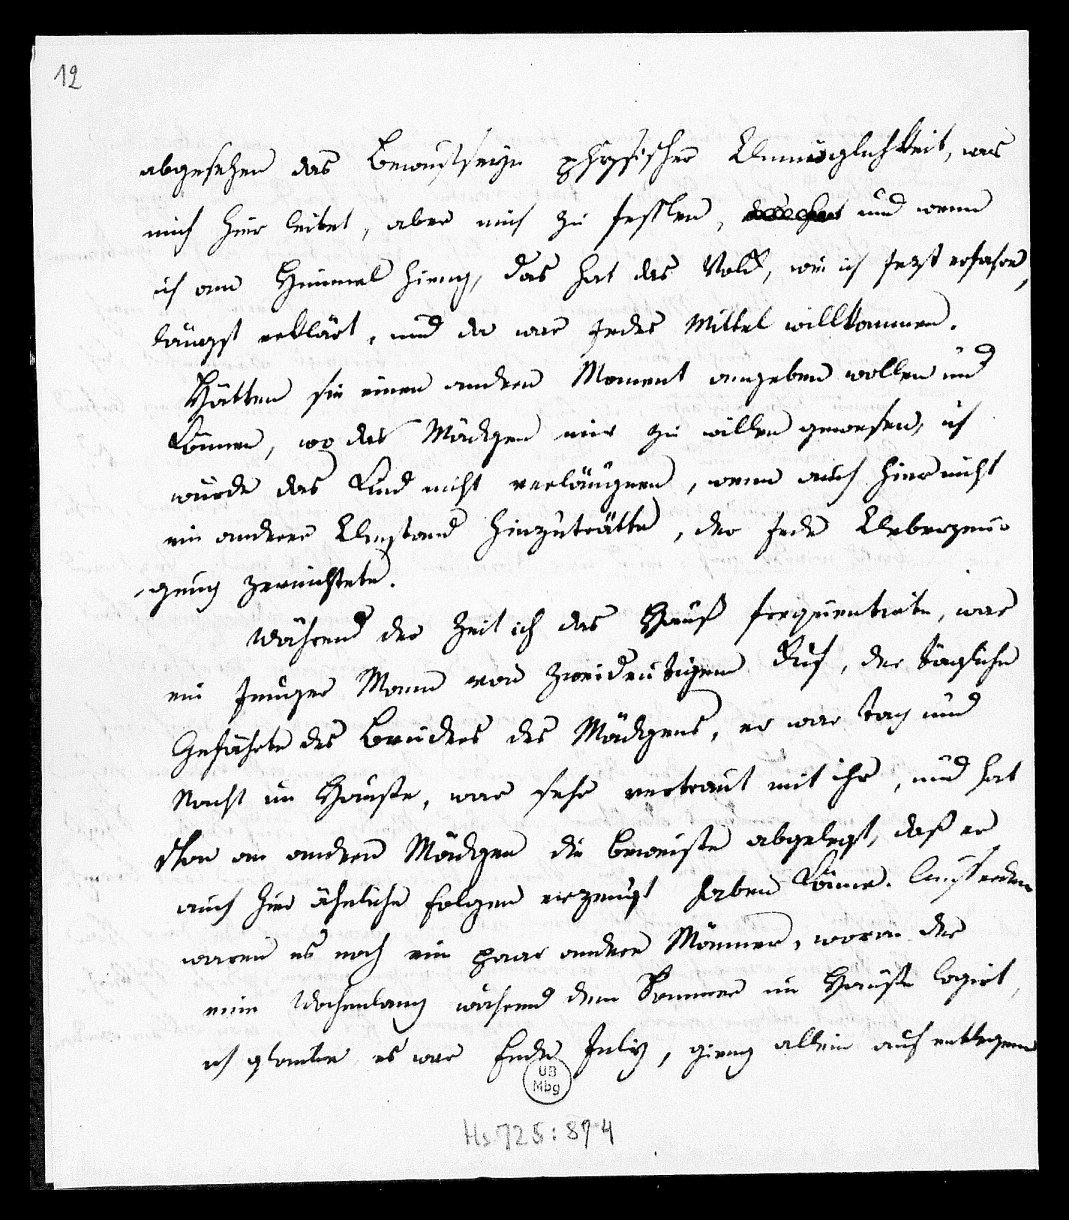 12
abgesehen das Bewustseyn physischer Unmöglichkeit, was
mich hier leitet, aber mich zu fesslen, und wenn
ich am Himmel hieng, das hat das Volk, wie ich jezt erfahre,
längst erklärt, und da war jedes Mittel willkommen.
Hätten sie einen andren Moment angeben wollen und
können, wo das Mädgen mir zu willen gewesen, ich
würde das Kind nicht verläugnen, wenn auch hier nicht
ein anderer Umstand hinzuträtte, der jede Ueberzeu-
gung zernichtete.
Während der Zeit ich das Hauß frequentirte, war
ein junger Mann von zweideutigem Ruf, der tägliche
Gefährte des Bruders des Mädgens, er war Tag und
Nacht im Hauße, war sehr vertraut mit ihr, und hat
schon an andern Mädgen die Beweiße abgelegt, daß er
auch hier ähnliche Folgen erzeugt haben könne. Ausserdem
waren es noch ein paar andere Männer, wovon der
eine Wochenlang während dem Sommer im Hauße logirt,
ich glaube es war Ende July, gieng allein auf entlegene
UB
Mbg
Hs. 725: 874